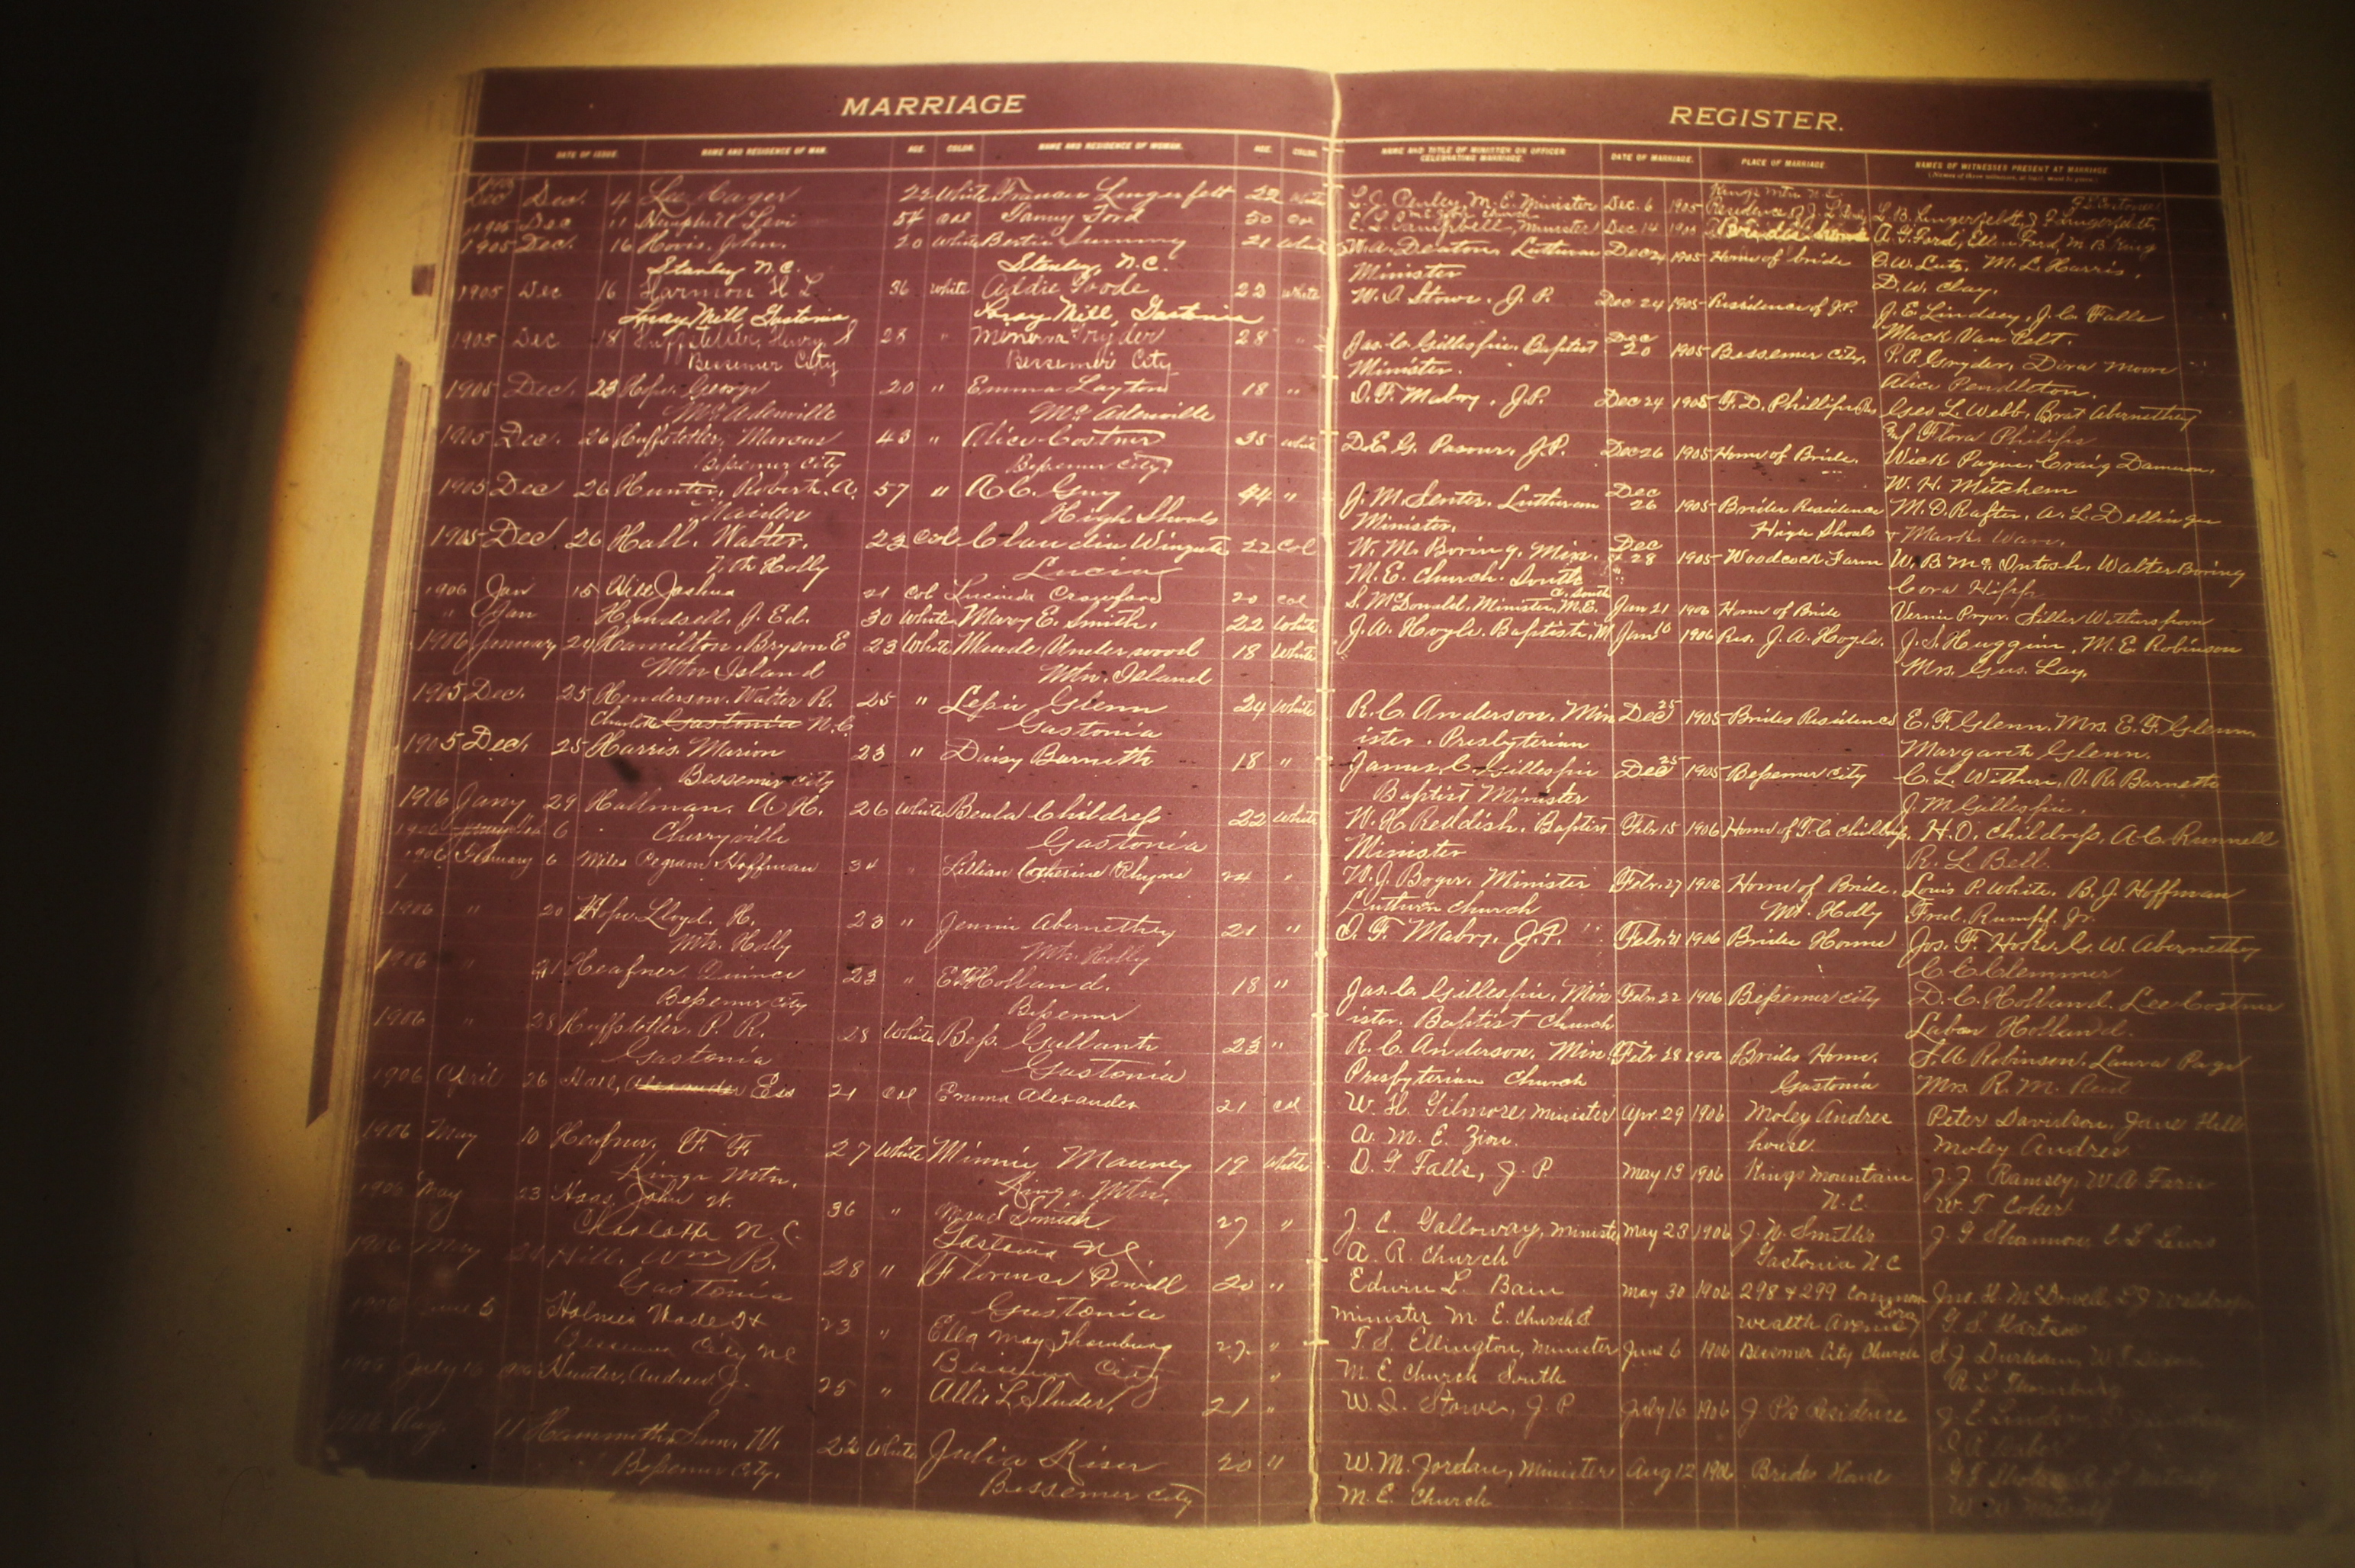 MARRIAGE REGISTER.
DATE OF ISSUE. NAME AND RESIDENCE OF MAN. AGE. COLOR. NAME AND RESIDENCE OF WOMAN. AGE. COLOR. NAME AND TITLE OF MINISTER OR OFFICER CELEBRATING MARRIAGE. DATE OF MARRIAGE. PLACE OF MARRIAGE. NAMES OF WITNESSES PRESENT AT MARRIAGE.
Kings Mtn N.C.
Dec. 4 Lee Hager 22 White Frances Lingerfelt 22 L. C. M.E. Minister Dec. 6 1905 Residence of J. L.
1905 Dec 11 Hemphill Levi 54 Col Fanny Ford 50 Col E. L. Campbell, Minister Dec 14 A. G. Ford, Ellen Ford, M. B. King
1905 Dec. 16 Hovis, John. 20 White Bertie Summey 21 White W. A. Deaton, Lutheran Dec 24 1905 Home of bride O. W. Lutz, M. L. Harris,
Stanley N.C. Stanley, N.C. Minister D. W. Clay.
1905 Dec 16 Harmon H L 36 White Addie Goode 22 White W. I. Stowe. J. P. Dec 24 1905 Residence of J.P. J. E. Lindsey, J. C. Falls
Loray Mill, Gastonia Loray Mill, Gastonia Mack Van Pelt.
1905 Dec 18 Henry S 28 " Minerva 28 " Jas. C. Gillespie. Baptist Dec 20 1905 Bessemer City. P. P. Dora Moore
Bessemer City Bessemer City Minister. Alice Pendleton.
1905 Dec. 23 George 20 " Emma Layton 18 " I. F. Mabry. J.P. Dec 24 1905 F. D. Phillips Geo L. Webb, Abernethey
McAdenville McAdenville Flora Philips
1905 Dec. 26 Huffstetler, Marcus 43 " Alice Costner 35 White D. E. G. Pasour, J.P. Dec 26 1905 Home of Bride. Wick Payne, Craig
Bessemer City Bessemer City. W. H. Mitchem
1905 Dec 26 Hunter, Robert. A. 57 " A. C. 44 " J. M. Senter. Lutheran Dec 26 1905 Brides Residence M. O. Rafter, A. L. Dellinger
Maiden High Shoals Minister. High Shoals
1905 Dec 26 Hall. Walter. 23 Col Claudia Wingate 22 Col W. M. Boring, Min. Dec 28 1905 Woodcock Farm W. B. McIntosh, Walter Boring
Mt Holly Lucia M. E. Church. South Cora Hipp
1906 Jan 15 Will Joshua 21 Col Lucinda Crawford 20 Col S. McDonald, Minister, M.E. Jan 21 1906 Home of Bride
" Jan Handsell, J. Ed. 30 White Mary E. Smith. 22 White J. W. Hoyle. Baptist, M Jan 1906 Res. J. A. Hoyle. J. S. Huggins, M. E. Robinson
1906 January 24 Hamilton, Bryson E 23 White Maude Underwood 18 White Mrs. Gus. Lay.
Mtn Island Mtn. Island
1905 Dec. 25 Henderson. Walter R. 25 " Glenn 24 White R. C. Anderson. Min Dec 25 1905 Brides Residence E. F. Glenn. Mrs. E. F. Glenn.
Charlotte Gastonia N.C. Gastonia ister. Presbyterian Margaret Glenn.
1905 Dec. 25 Harris. Marion 23 " Daisy Barnett 18 " James C. Gillespie Dec 25 1905 Bessemer City C. L. V. R. Barnett
Bessemer City Baptist Minister J. M. Gillespie.
1906 Jany 29 Hallman. A. H. 26 White Beula Childress 22 White W. H. Reddish. Baptist Feb. 15 1906 Home of T. C. Childress. H. O. Childress, A. C.
Cherryville Gastonia Minister R. L. Bell.
1906 February 6 Miles Pegram Hoffman 34 " Lillian Catherine Rhyne 24 " W. J. Boger. Minister Feb. 27 1906 Home of Bride. Louis P. White. B. J. Hoffman
Lutheran Church Mt. Holly Fred. Rumpf. Jr.
1906 " 20 Lloyd. H. 23 " Jennie Abernethey 21 " I. F. Mabry. J.P. Feb. 21 1906 Brides Home Jos. F. G. W. Abernethey
Mtn. Holly Mtn. Holly C. C. Clemmer
1906 " 21 Heafner. Quince 23 " Holland. 18 " Jas. C. Gillespie. Min Feb 22 1906 Bessemer City D. C. Holland. Lee Costner
Bessemer City Bessemer ister. Baptist Church Laban Holland.
1906 " 28 Huffstetler. P. R. 28 White Bess. Gallant 23 " R. C. Anderson. Min. Feb 28 1906 Brides Home. S. A. Robinson. Laura Page
Gastonia Gastonia Presbyterian Church Gastonia Mrs R. M. Reid
1906 April 26 Hall, Alexander 21 Col Emma Alexander 21 Col W. H. Gilmore, Minister Apr. 29 1906 Moley Andres Peter Davidson, Jane Hill
A. M. E. Zion. house. Moley Andres
1906 May 10 Heafner. F. F. 27 White Minnie Mauney 19 White O. G. Falls, J. P. May 13 1906 Kings Mountain J. J. Ramsey, W. A. Faris
Kings Mtn. Kings. Mtn. N. C. W. T. Coker
1906 May 23 Haas, John W. 36 " Maud Smith 27 " J. C. Galloway, Minister May 23 1906 J. W. Smith's J. G. Shannon, E. L. Lewis
Charlotte N. C. Gastonia N.C. A. R. Church Gastonia N C
1906 May Hill. Wm B. 28 " Florence Powell 20 " Edwin L. Bain May 30 1906 298 & 299 Common Jno. H. McDowell,
Gastonia Gastonia Minister M. E. Church wealth Avenue
June 5 Holmes Wade 23 " Ella May Thornburg 27 " T. S. Ellington, Minister June 6 1906 Bessemer City Church S. J. Durham,
Bessemer City N C Bessemer City M. E. Church South R. L. Thornburg
July 16 1906 Hunter, Andrew J. 25 " Allie L. Sluder. 21 " W. I. Stowe, J. P. July 16 1906 J P's Residence
Aug. 11 Sam. W. 22 White Julia Kiser 20 " W. M. Jordan, Minister Aug 12 1906 Brides Home
Bessemer City. Bessemer City M. E. Church